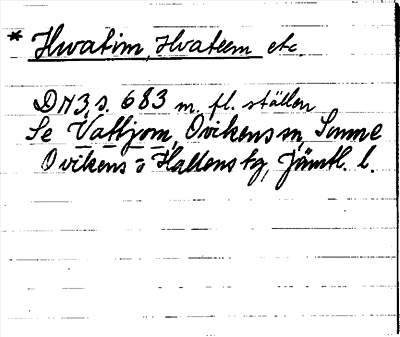 * Hwatim, Hvateem etc
DN3, s. 683 m. fl. ställen
Se Vattjom, Ovikens sn, Sunne
Ovikens o Hallens tg, Jämtl. l.